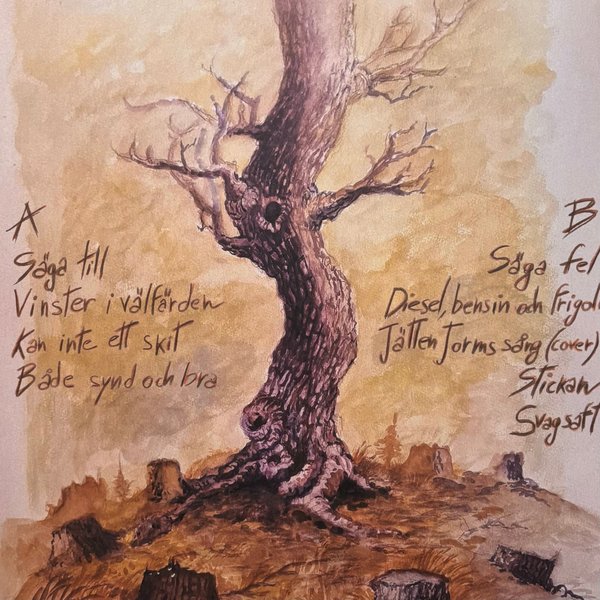 A
Säga till
Vinster i välfärden
Kan inte ett skit
Både synd och bra
B
Säga fel
Diesel, bensin och frigol
Jätten Torms sång (cover)
Stickan
Svagsaft